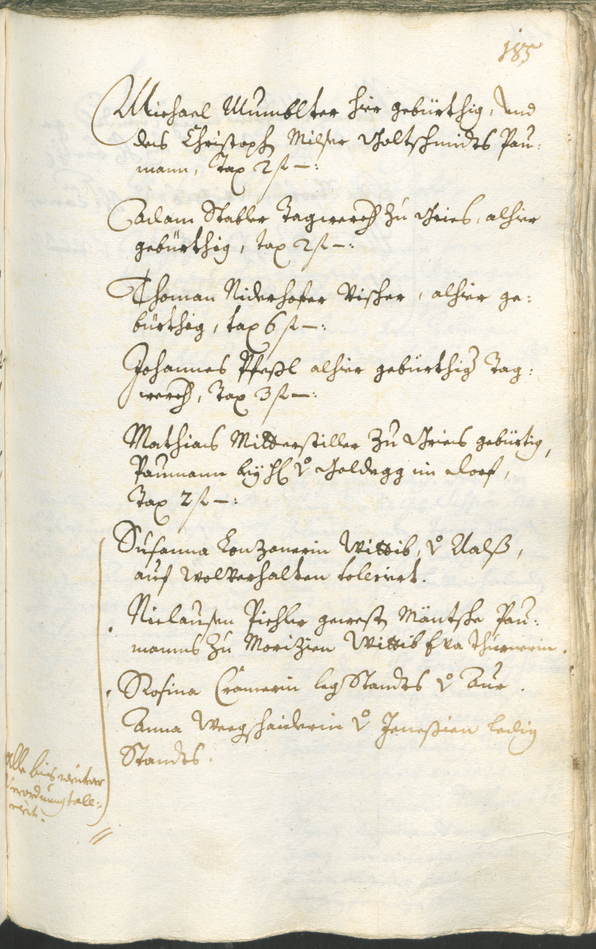 185
Michael Mumblter hier gebürthig, und
des Christoph Milser Goltschmidts Pau-
mann, Tax 2 f —:
Adam Stabler Tagwerch zu Gries, alhier
gebürthig, tax 2 f —:
Thoman Niderhofer Vischer, alhier ge-
bürthig, tax 6 f —:
Johannes Pfeßl alhier gebürthig Tag-
werch, Tax 3 f —:
Mathias Mitterstiller zu Gries gebürtig,
Paumann bey H: v: Goldegg im Dorf,
Tax 2 f —:
Susanna Conzanerin Wittib, v: Ualß,
auf wolverhalten tolerirt.
Niclausen Pichler gewest Mäntshe Pau-
manns zu Morizien Wittib Eva Thurnerin.
Rosina Cramerin leg Standts v: Aur.
Anna Weegshaiderin v: Jenesien ledig
Standts.
Alle bis weiter
verordnung tole-
rirt.